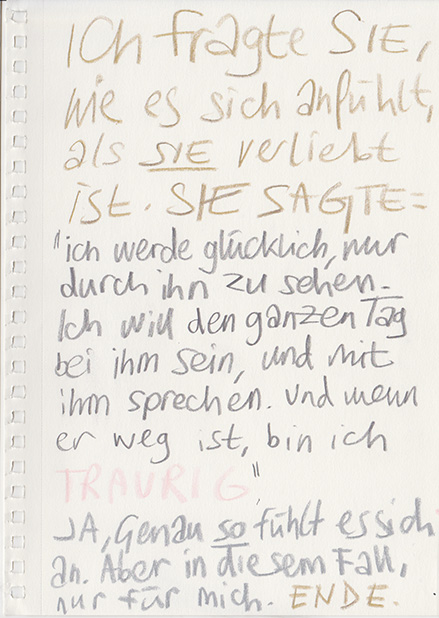 ich fragte SIE,
wie es sich anfühlt,
als SIE verliebt
ist. SIE SAGTE:
"ich werde glücklich, nur
durch ihn zu sehen.
Ich will den ganzen Tag
bei ihm sein, und mit
ihm sprechen. und wenn
er weg ist, bin ich
TRAURIG",
JA, Genau so fühlt es sich
an. Aber in diesem Fall,
nur für mich. ENDE.